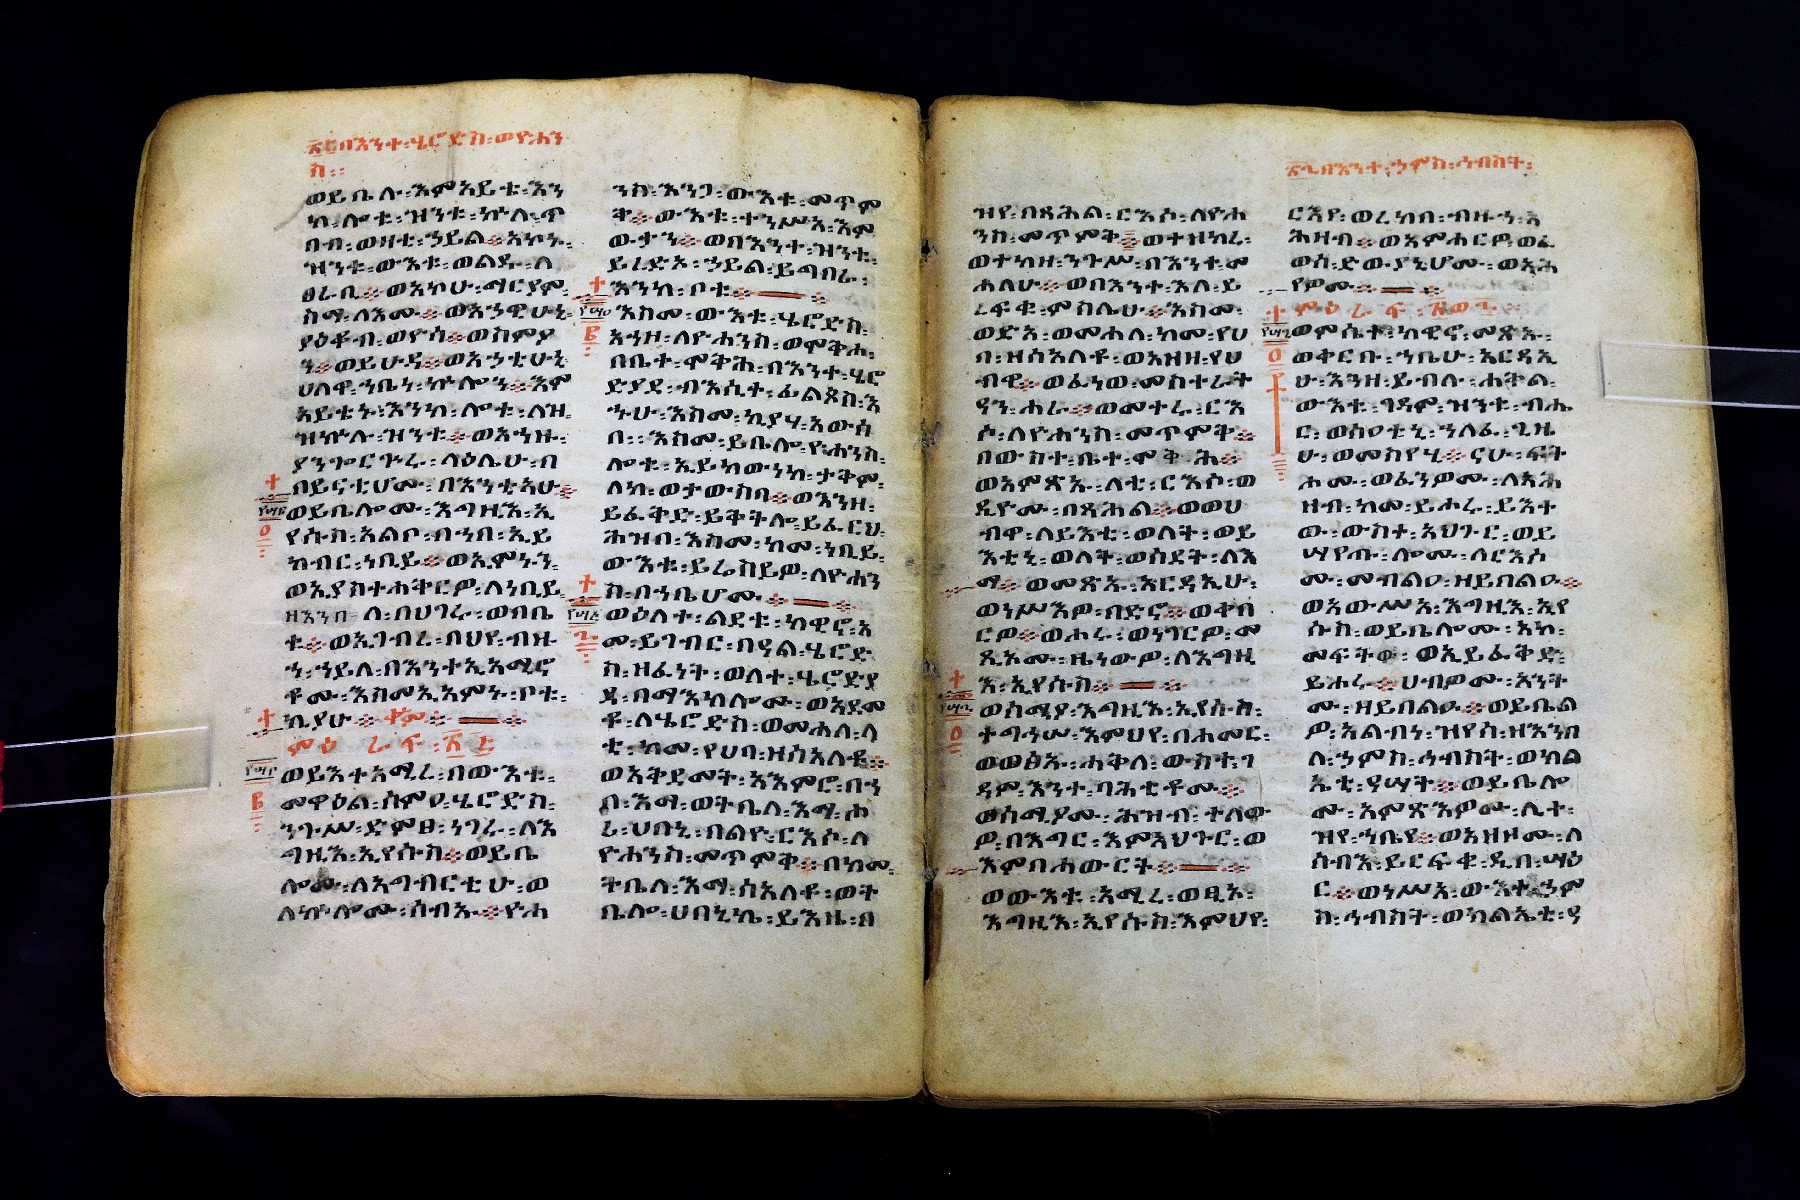 ፳፭በእንተ፡ሄሮድስ፡ወዮሐን
ስ፡፡
ወይቤሉ፡እምአይቴ፡እን
ከ፡ሎቱ፡ዝንቱ፡ኵሉ፡ጥ
በብ፡ወዝቲ፡ኃይል፨አኮኑ፡
ዝንቱ፡ውእቱ፡ወልዱ፡ለ
ፀራቢ፨ወአኮሁ፡ማርያም፡
ስማ፡ለእሙ፨ወአኃዊሁኒ፡
ያዕቆብ፡ወዮሳ፨ወስምዖ
ን፨ወይሁዳ፨ወአኃቲሁኒ
ሀለዋ፡ኀቤነ፡ኵሎን፨እም
አይቴኑ፡እንከ፡ሎቱ፡ለዝ፡
ዝኵሉ፡ዝንቱ፨ወአኀዙ፡
ያንጐርጕሩ፡ላዕሌሁ፡በ
በይናቲሆሙ፡በእንቲአሁ፨
ወይቤሎሙ፡እግዚእ፡ኢ
የሱስ፡አልቦ፡በኀበ፡ኢይ
ከብር፡ነቢይ፨ወኢምኑን፡
ወኢያስተሐቅርዎ፡ለነቢይ፡
ዘእንበለ፡በሀገሩ፡ወበቤ
ቱ፨ወኢገብረ፡በህየ፡ብዙ
ኀ፡ኃይለ፡በእንተ፡ኢአሚኖ
ቶሙ፡እስመ፡ኢአምኑ፡ቦቱ፡
ኪያሁ፨
ምዕራፍ፡፳፭
ወይእተ፡አሚረ፡በውእቱ፡
መዋዕል፡ሰምዐ፡ሄሮድስ፡
ንጉሥ፡ድምፀ፡ነገሩ፡ለእ
ግዚእ፡ኢየሱስ፨ወይቤ
ሎሙ፡ለአግብርቲሁ፡ወ
ለኵሎሙ፡ሰብኡ፨ዮሐ
ንስ፡እንጋ፡ውእቱ፡መጥም
ቅ፨ውእቱ፡ተንሥአ፡እም
ውታን፨ወበእንተ፡ዝንቱ፡
ይረድእ፡ኃይል፡ይግበሩ፡
እንከ፡ቦቱ፨
እስመ፡ውእቱ፡ሄሮድስ፡
አኀዘ፡ለዮሐንስ፡ወሞቅሖ፡
በቤተ፡ሞቅሕ፡በእንተ፡ሄሮ
ድያዳ፡ብእሲት፡ፊልጶስ፡እ
ኁሁ፡እስመ፡ኪያሃ፡አውሰ
በ፡፡እስመ፡ይቤሎ፡ዮሐንስ፡
ሎቱ፡ኢይከውነከ፡ታቅም፡
ለከ፡ወታውስባ፨ወእንዘ፡
ይፈቅድ፡ይቅትሎ፡ይፈርህ፡
ሕዝበ፡እስመ፡ከመ፡ነቢይ፡
ውእቱ፡ይሬስይዎ፡ለዮሐን
ስ፡በኀቤሆሙ፨
ወዕለተ፡ልደቱ፡ከዊኖ፡እ
መ፡ይገብር፡በዓል፡ሄሮድ
ስ፡ዘፈነት፡ወለተ፡ሄሮድያ
ዳ፡በማእከሎሙ፡ወአደመ
ቶ፡ለሄሮድስ፡ወመሐለ፡ላ
ቲ፡ከመ፡የሀባ፡ዘሰአለቶ፨
ወአቅደመት፡አእምሮ፡በኀ
በ፡እማ፡ወትቤላ፡እማ፡ሐ
ሪ፡ሀበኒ፡በልዮ፡ርእሶ፡ለ
ዮሐንስ፡መጥምቅ፨በከመ
ትቤላ፡እማ፡ሰአለቶ፡ወት
ቤሎ፡ሀበኒኬ፡ይእዜ፡በ
፳፮በእንተ፡ኃምስ፡ኅብስት፡
ዝየ፡በጻሕል፡ርእሶ፡ለዮሐ
ንስ፡መጥምቅ፨ወተዝካረ፡
ወተከዘ፡ንጉሥ፡በእንተ፡መ
ሐላሁ፨ወበእንተ፡እለ፡ይ
ረፍቁ፡ምስሌሁ፨እስመ፡
ወድአ፡ወመሐለ፡ከመ፡የሀ
ባ፡ዘሰአለቶ፡ወአዘዘ፡የሀ
ብዋ፨ወፈነወ፡መስተራት
ዓነ፡ሐራ፨ወመተሩ፡ርእ
ሶ፡ለዮሐንስ፡መጥምቅ፨
በውስተ፡ቤተ፡ሞቅሕ፨
ወአምጽኡ፡ላቲ፡ርእሶ፡ወ
ዲዮሙ፡በጻሕል፨ወወሀ
ብዋ፡ለይእቲ፡ወለት፡ወይ
እቲኒ፡ወለት፡ወሰደት፡ለእ
ማ፨ወመጽኡ፡አርዳኢሁ፡
ወነሥእዎ፡በድኖ፨ወቀበ
ርዎ፨ወሐሩ፡ወነገርዎ፡መ
ጺኦሙ፡ዜነውዎ፡ለእግዚ
እ፡ኢየሱስ፨
ወሰሚዖ፡እግዚእ፡ኢየሱስ፡
ተግኅሠ፡እምህየ፡በሐመር፡
ወወፅአ፡ሐቅለ፡ውስተ፡ገ
ዳም፡እንተ፡ባሕቲቶሙ፨
ወሰሚዖሙ፡ሕዝብ፡ተለው
ዎ፡በእግር፡እምአህጉር፡ወ
እምበሐውርት፨
ወውእቱ፡አሚረ፡ወፂኦ፡
እግዚእ፡ኢየሱስ፡እምህየ፡
ርእየ፡ወረከበ፡ብዙኀ፡አ
ሕዛበ፨ወአምሐርዎ፡ወፈ
ወሰ፡ድውያኒሆሙ፡ወአሕ
የዎሙ፨
ምዕራፍ፡፳ወ፮
ወምሴተ፡ከዊኖ፡መጽኡ፡
ወቀርቡ፡ኀቤሁ፡አርዳኢ
ሁ፡እንዘ፡ይብሉ፡ሐቅል፡
ውእቱ፡ገዳም፡ዝንቱ፡ብሔ
ር፡ወሰዐቲኒ፡ኀለፈ፡ጊዜ
ሁ፡ወመስየሂ፨ናሁ፡ፍት
ሖሙ፡ወፈንዎሙ፡ለአሕ
ዛብ፡ከመ፡ይሖሩ፡ይእተ
ው፡ውስተ፡አህጉር፡ወይ
ሣየጡ፡ሎሙ፡ለርእሶ
ሙ፡መብልዐ፡ዘይበልዑ፨
ወአውሥአ፡እግዚእ፡ኢየ
ሱስ፡ወይቤሎሙ፡አኮ፡
መፍትው፡ወኢይፈቅድ፡
ይሖሩ፨ሀብዎሙ፡አንት
ሙ፡ዘይበልዑ፨ወይቤል
ዎ፡አልብነ፡ዝየሰ፡ዘእንበ
ለ፡ኃምስ፡ኅብስት፡ወክል
ኤቲ፡ዓሣት፨ወይቤሎ
ሙ፡አምጽእዎሙ፡ሊተ፡
ዝየ፡ኀቤየ፨ወአዘዞሙ፡ለ
ሰብእ፡ይርፍቁ፡ዲበ፡ሣዕ
ር፨ወነሥአ፡ውእተ፡ኃም
ስ፡ኅብስት፡ወክልኤቲ፡ዓ